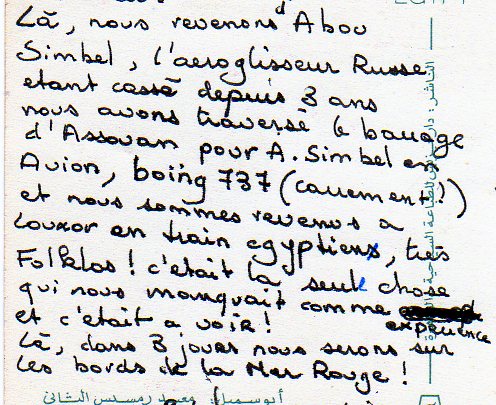 EGYPT
Là, nous revenons d'Abou
Simbel, l'aeroglisseur Russe
etant cassé depuis 3 ans
nous avons traversé le barrage
d'Assouan pour A. Simbel en
Avion, boing 737 (carrement!)
et nous sommes revenus a
Louxor en train egyptiens, très
Folklos! c'était la seule chose
qui nous manquait comme
experience
et c'était a voir!
Là, dans 3 jours nous serons sur
les bords de la Mer Rouge!
أبو سمبل معبد رمسيس الثاني